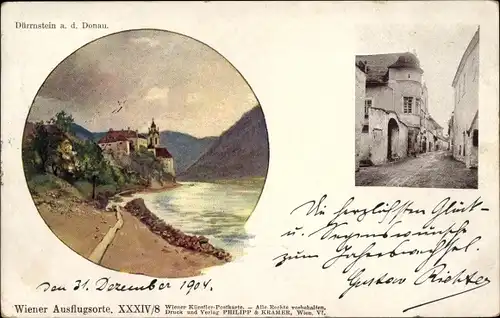 Dürrnstein a. d. Donau.
Die herzlichsten Glück-
u. Segenswünsche
zum Jahreswechsel.
Gustav Richter
den 31. Dezember 1904.
Wiener Ausflugsorte, XXXIV/8
Wiener Künstler-Postkarte. — Alle Rechte vorbehalten.
Druck und Verlag PHILIPP & KRAMER, Wien, VI.